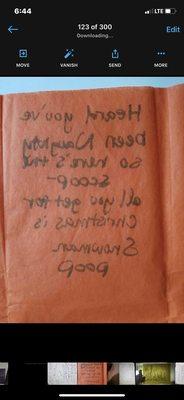 6:44
LTE
123 of 300
Downloading...
Edit
MOVE
VANISH
SEND
MORE
Heard you've
been Naughty
so here's the
scoop-
all you get for
Christmas is
Snowman
poop